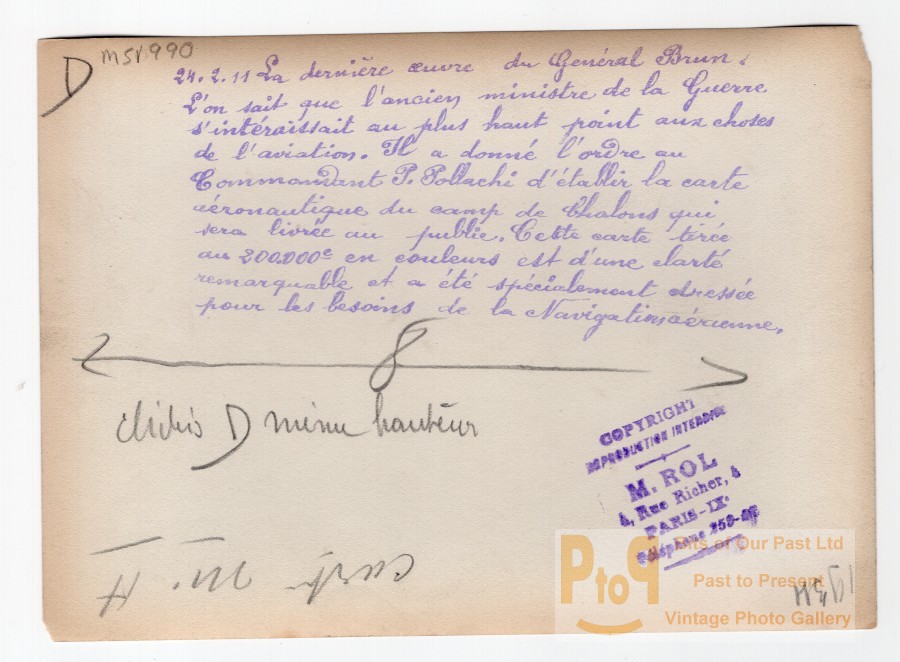 D
MSN990
24.2.11 La dernière œuvre du Général Brun.
L'on sait que l'ancien ministre de la Guerre
s'intéraissait au plus haut point aux choses
de l'aviation. Il a donné l'ordre au
Commandant P. Pollachi d'établir la carte
aéronautique du camp de Chalons qui
sera livrée au public. Cette carte tirée
au 200.000e en couleurs est d'une clarté
remarquable et a été spécialement dressée
pour les besoins de la Navigation aérienne.
8
clichés D même hauteur
COPYRIGHT
REPRODUCTION INTERDITE
M. ROL
4, Rue Richer, 4
PARIS-IX
Téléphone
PtoP
Bits of Our Past Ltd
Past to Present
Vintage Photo Gallery